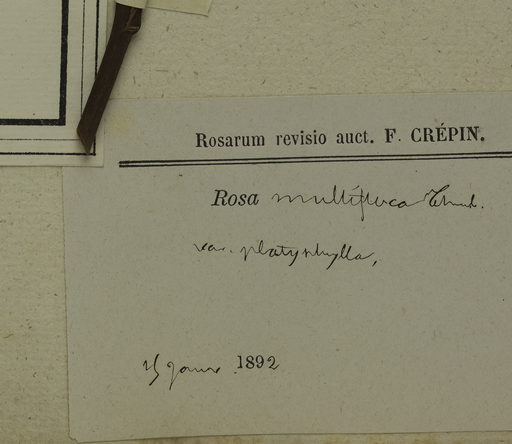 Rosarum revisio auct. F. CRÉPIN.
Rosa multiflora Thunb.
var. platyphylla,
1892